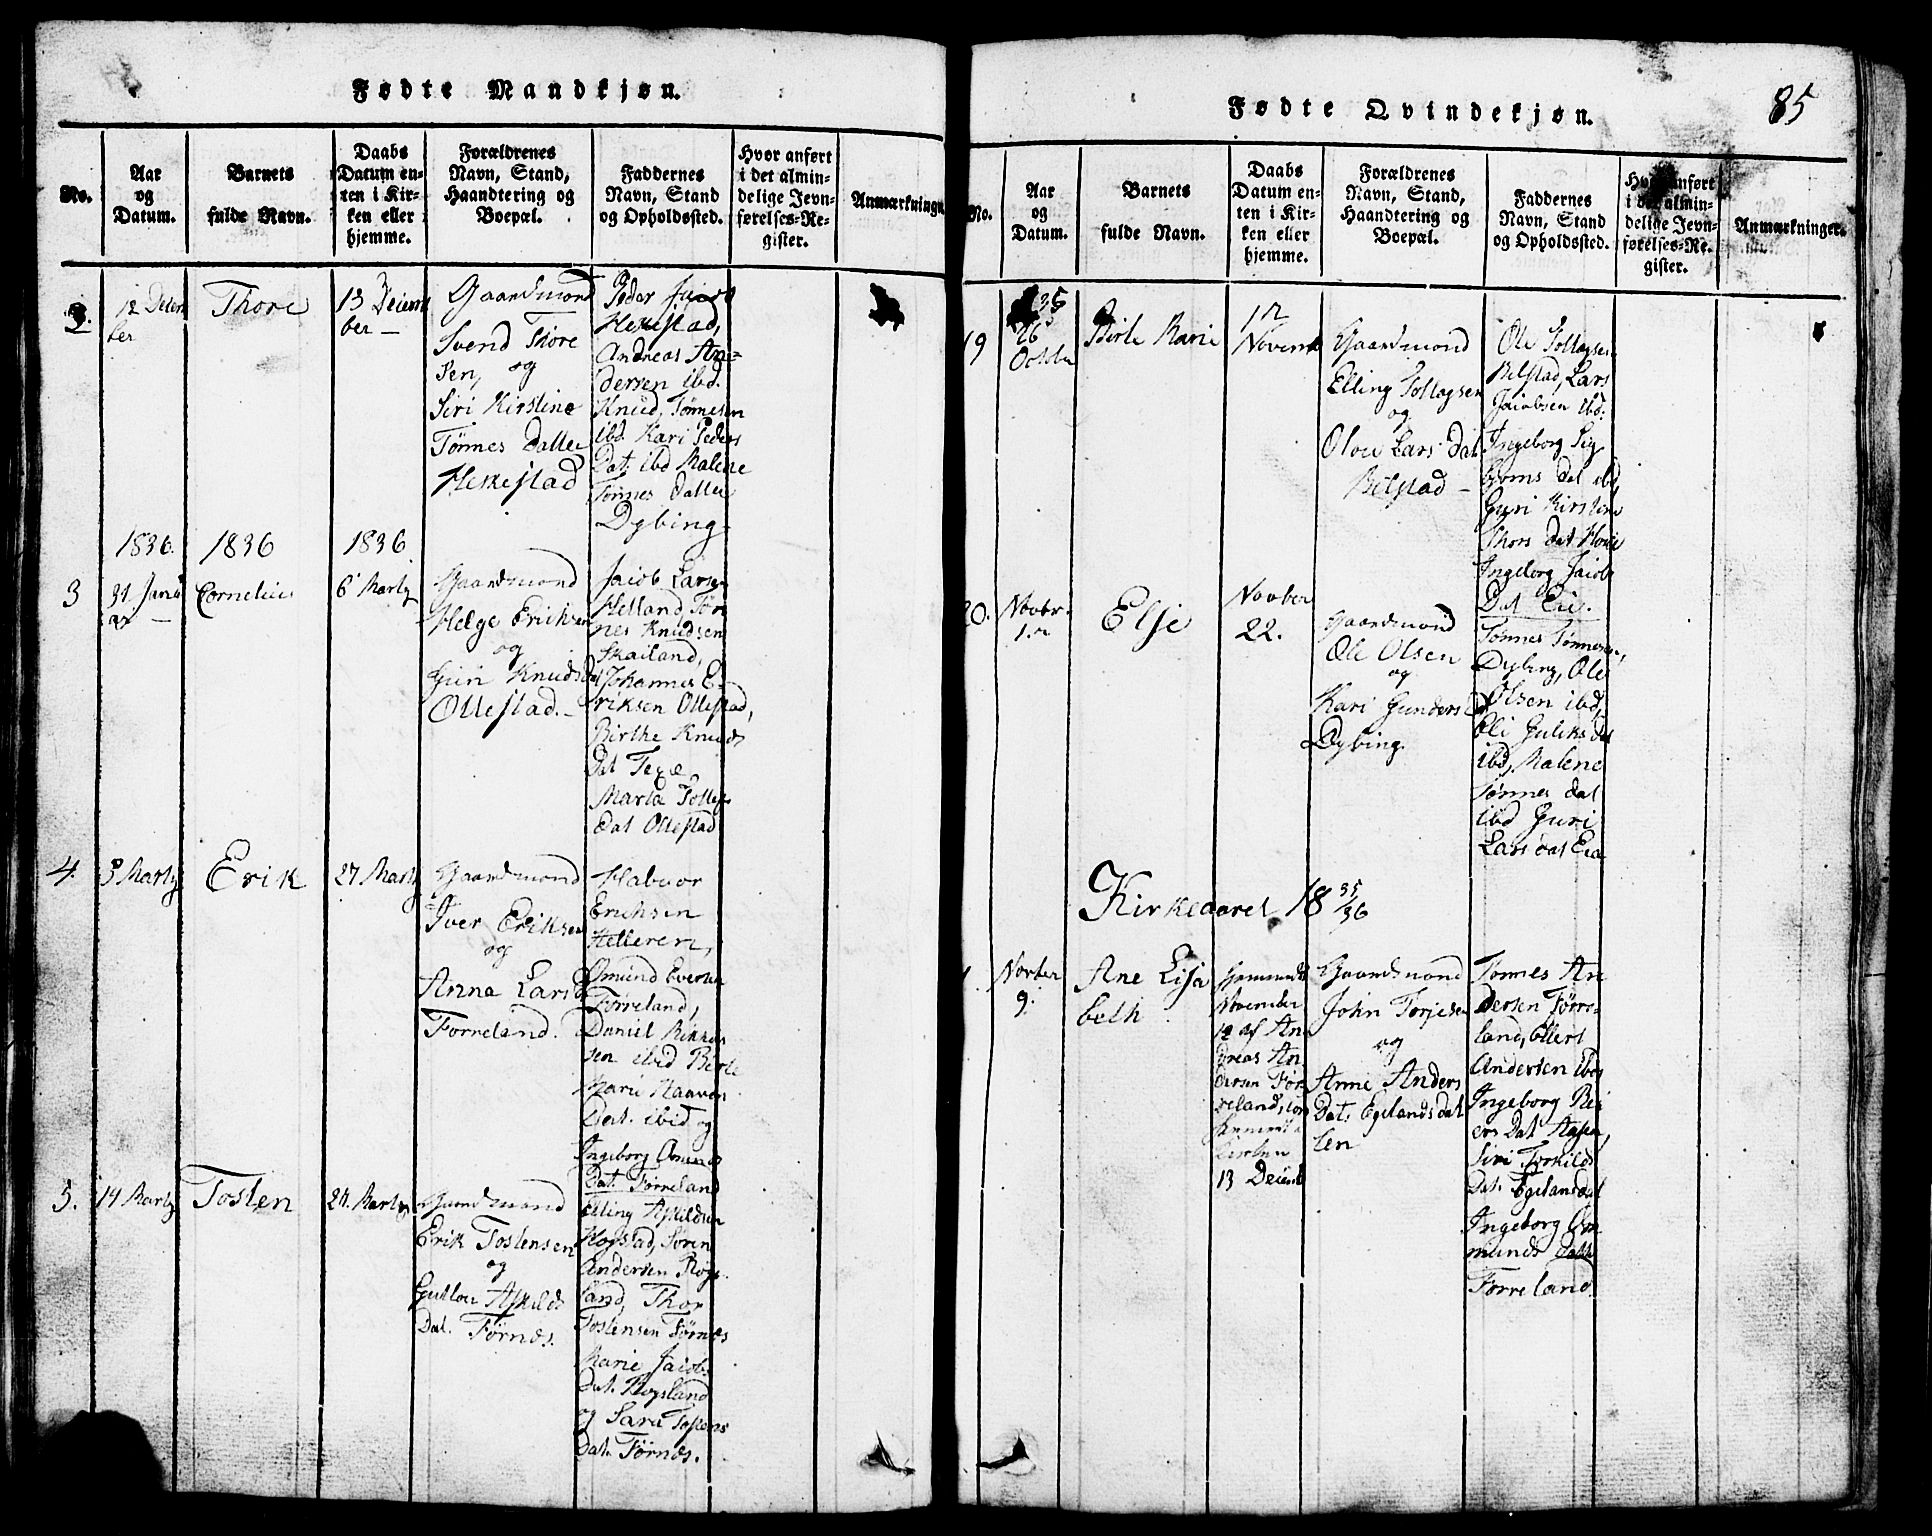 Fødte Mandkjøn.
No.
Aar
og
Datum.
Barnets
fulde Navn.
Daabs
Datum en-
ten i Kir-
ken eller
hjemme.
Forældrenes
Navn, Stand,
Haandtering og
Boepæl.
Faddernes
Navn, Stand
og Opholdssted.
Hvor anført
i det almin-
delige Jevn-
førelses-Re-
gister.
Anmærkninger
12 Decem
ber
Thore
13 Deiem
ber —
Gaardmand
Svend Thore
Sen, og
Siri Kirstine
Tønnes Datter
Heskestad
Peder
Heskestad,
Andreas An-
dersen ibd.
Knud Tønnesen
ibd. Kari Peders
Dat. ibd Malene
Tønnes Datter
Dybing.
1836. 1836 1836
3
31 Janu
ar —
Cornelius
6 Marty
Gaardmand
Helge Eriksen
og
Guri Knuds Dat
Ollestad. —
Jacob Larsen
Helland, Tøn
nes Knudsen
Skailand,
Johannes E-
riksen Ollestad,
Birthe Knuds
Dat
Marta Tollefs
Dat Ollestad
4.
3 Marty
Erik
27 Marty
Gaardmand
Iver Eriksen
og
Anna Lars D
Førreland.
Habvor
Erichsen
Helleren,
Omund Evertsen
Førreland,
Daniel
sen ibid Birte
Marie Haavor
Dat. ibid og
Ingeborg Omunds
Dat. Førreland
5.
14 Marty
Tosten
27. Marty
Gaardmand
Erik Tostensen
og
Gutlou Askilds
Dat. Førnæs.
Elling Askildsen
Hogstad, Søren
Andersen Rogs
land, Thor
Tostensen Førnæs
Marie Jacobs
Dat. Rogsland
og Sara Tostens
Dat. Førnæs.
Fødte Qvindekjøn.
85
No.
Aar
og
Datum.
Barnets
fulde Navn.
Daabs
Datum en-
ten i Kir-
ken eller
hjemme.
Forældrenes
Navn, Stand,
Haandtering og
Boepæl.
Faddernes
Navn, Stand
og Opholdssted.
Hvor anført
i det almin-
delige Jevn-
førelses-Re-
gister.
Anmærkninger.
19
35
26
Octob
Birte Marie
1
Novemb
Gaardmand
Elling Tollagsen
og
Olou Lars Dat
Bilstad —
Ole Tollagsen
Bilstad, Lars
Jacobsen ibd.
Ingeborg Sig
bjørns Dat ibd,
Guri Kirstine
Thors Dat
Ingeborg Jacobs
Dat Eie.
20.
Novbr.
1.
Else
Novber
22.
Gaardmand
Ole Olsen
og
Kari Gunders D
Dybing.
Tønnes Tønnesen,
Dybing, Ole
Olsen ibd,
Eli Guliks dat
ibd, Malene
Tønnes dat
ibd Guri
Lars dat Eia
Kirkeaaret 18 35/36
1.
Novber
9.
Ane Lisa
beth
Hjemmedt
November
12 af An
dreas An
dersen Før
reland, con
Kirken
13 Deiemb
Gaardmand
John Torjesen
og
Anne Anders
Dat. Egelandsdal
len
Tønnes An
dersen Førre-
land, Ellert
Andersen ibd
Ingeborg Rei
ers Dat
Siri Torkilds
Dat. Egelansdal
Ingeborg Om
munds Datt
Førreland.